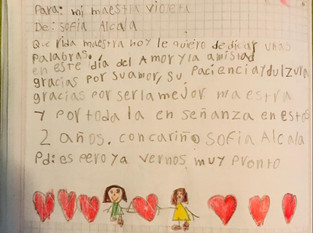 Para: mi maestra violeta
De: sofia Alcala
Querida maestra hoy le quiero dedicar unas
palabras.
en este día del Amor y la amistad
gracias por su amor, su paciencia y dulzura
gracias por ser la mejor maestra
y por toda la enseñanza en estos
2 años. con cariño sofia Alcala
Pd: espero ya vernos muy pronto